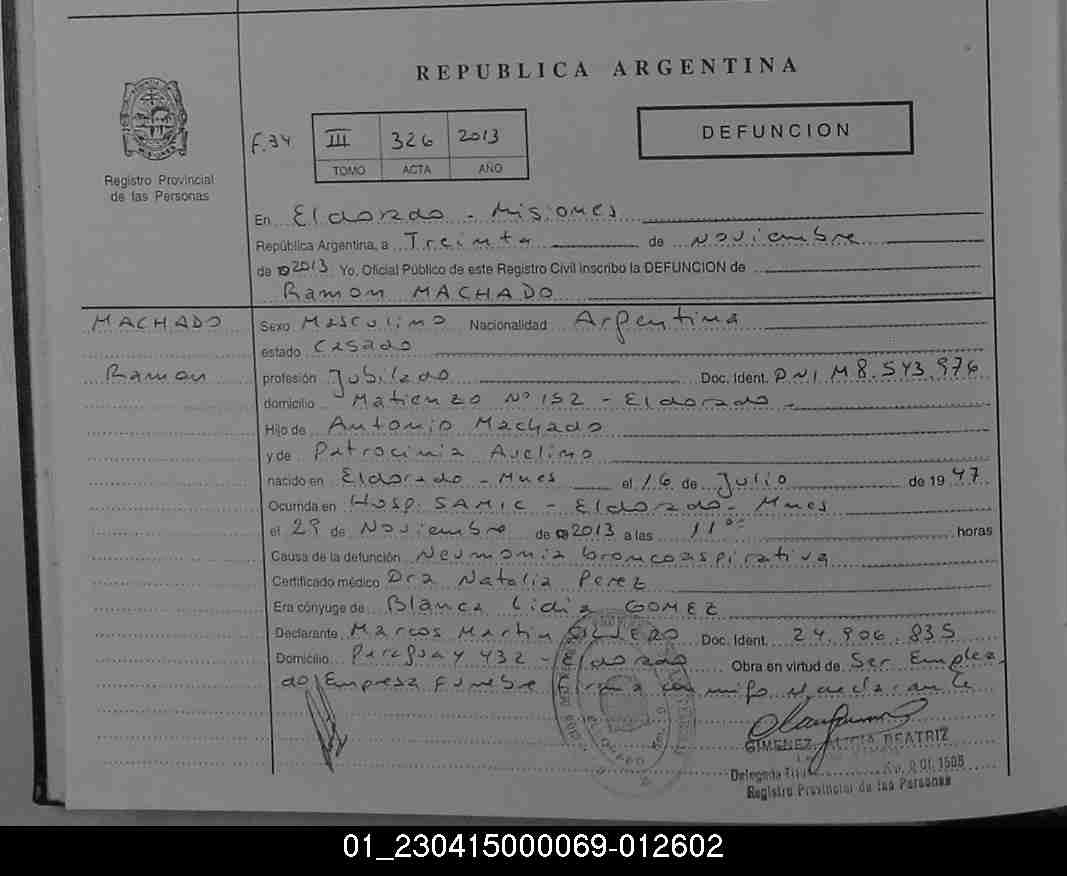 REPUBLICA ARGENTINA
Registro Provincial
de las Personas
F.34 III 326 2013
TOMO ACTA AÑO
DEFUNCION
En Eldorado - Misiones
República Argentina, a Treinta de Noviembre
de 2013 Yo, Oficial Público de este Registro Civil inscribo la DEFUNCION de
Ramon MACHADO
MACHADO
Ramon
Sexo Masculino Nacionalidad Argentina
estado Casado
profesión Jubilado Doc. Ident. DNI M8.543.976
domicilio Matienzo Nº 152 - Eldorado -
Hijo de Antonio Machado
y de Patrocinia Avelino
nacido en Eldorado - Mnes el 16 de Julio de 1947
Ocurrida en Hosp. SAMIC - Eldorado - Mnes
el 29 de Noviembre de 2013 a las 11⁰⁰ horas
Causa de la defunción Neumonia broncoaspirativa
Certificado médico Dra Natalia Perez
Era cónyuge de Blanca Lidia GOMEZ
Declarante Marcos Martin Doc. Ident. 24.906.835
Domicilio Paraguay 432 - Eldorado Obra en virtud de Ser Emplea
do Empresa Funebre Firma conmigo el declarante
GIMENEZ BEATRIZ
Delegada
Registro Provincial de las Personas
01_230415000069-012602